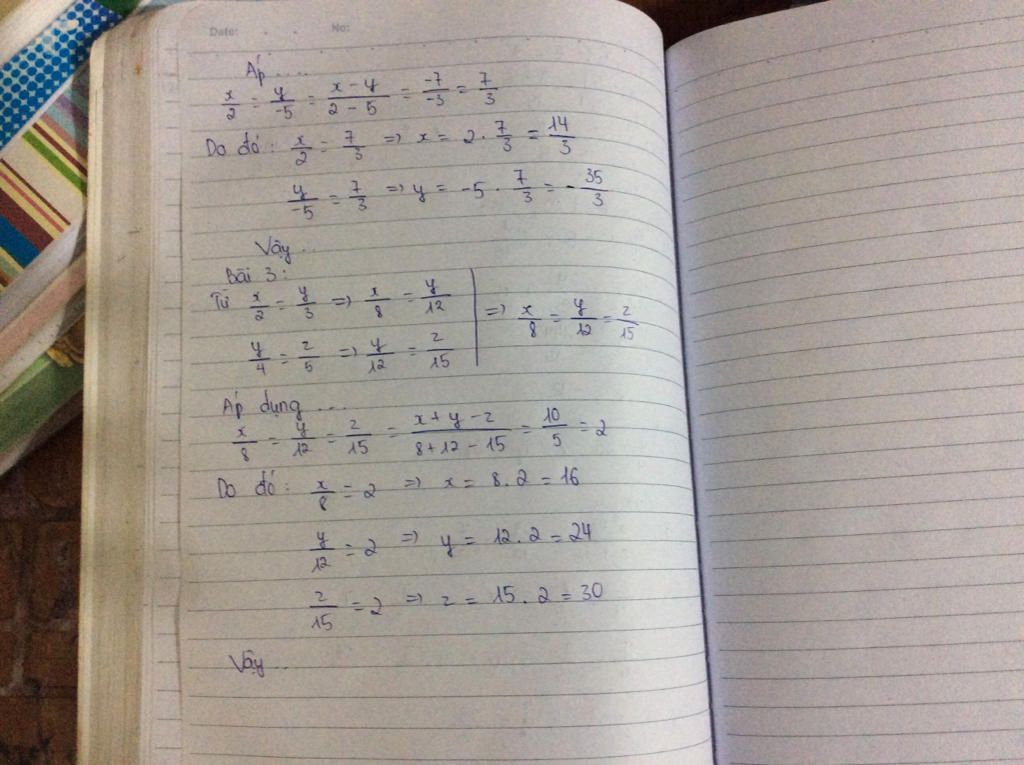 Date: No:
Áp ....
x/2 = y/-5 = (x - y)/(2 - 5) = -7/-3 = 7/3
Do đó: x/2 = 7/3 => x = 2 . 7/3 = 14/3
y/-5 = 7/3 => y = -5 . 7/3 = - 35/3
Vậy ..
Bài 3:
Từ x/2 = y/3 => x/8 = y/12
y/4 = z/5 => y/12 = z/15
=> x/8 = y/12 = z/15
Áp dụng ...
x/8 = y/12 = z/15 = (x + y - z)/(8 + 12 - 15) = 10/5 = 2
Do đó: x/8 = 2 => x = 8 . 2 = 16
y/12 = 2 => y = 12 . 2 = 24
z/15 = 2 => z = 15 . 2 = 30
Vậy ...